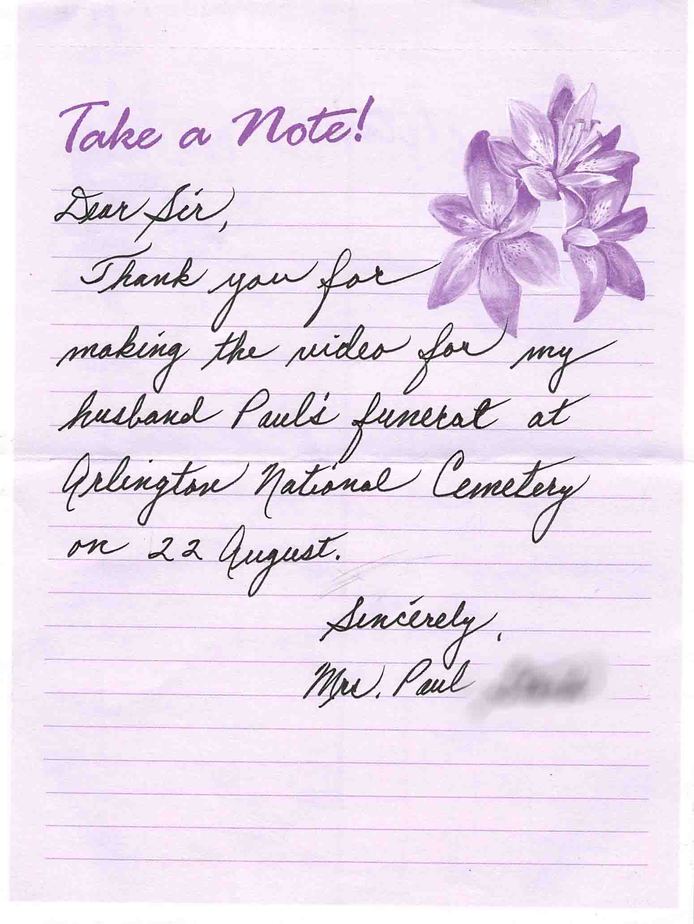 Take a Note!
Dear Sir,
Thank you for
making the video for my
husband Paul's funeral at
Arlington National Cemetery
on 22 August.
Sincerely,
Mrs. Paul